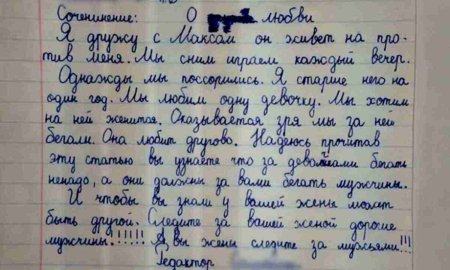 Сочинение: О любви
Я дружу с Максом он живет на про-
тив меня. Мы сним играем каждый вечер.
Однажды мы поссорились. Я старше него на
один год. Мы любим одну девочку. Мы хотим
на ней женится. Оказывается зря мы за ней
бегали. Она любит другово. Надеюсь прочитав
эту статью вы узнаете что за девочками бегать
ненадо, а они должны за вами бегать мужчины.
И чтобы вы знали у вашей жены может
быть другой. Следите за вашей женой дорогие
мужчины.!!!!! А вы жены следите за мужьями!!!
Редактор